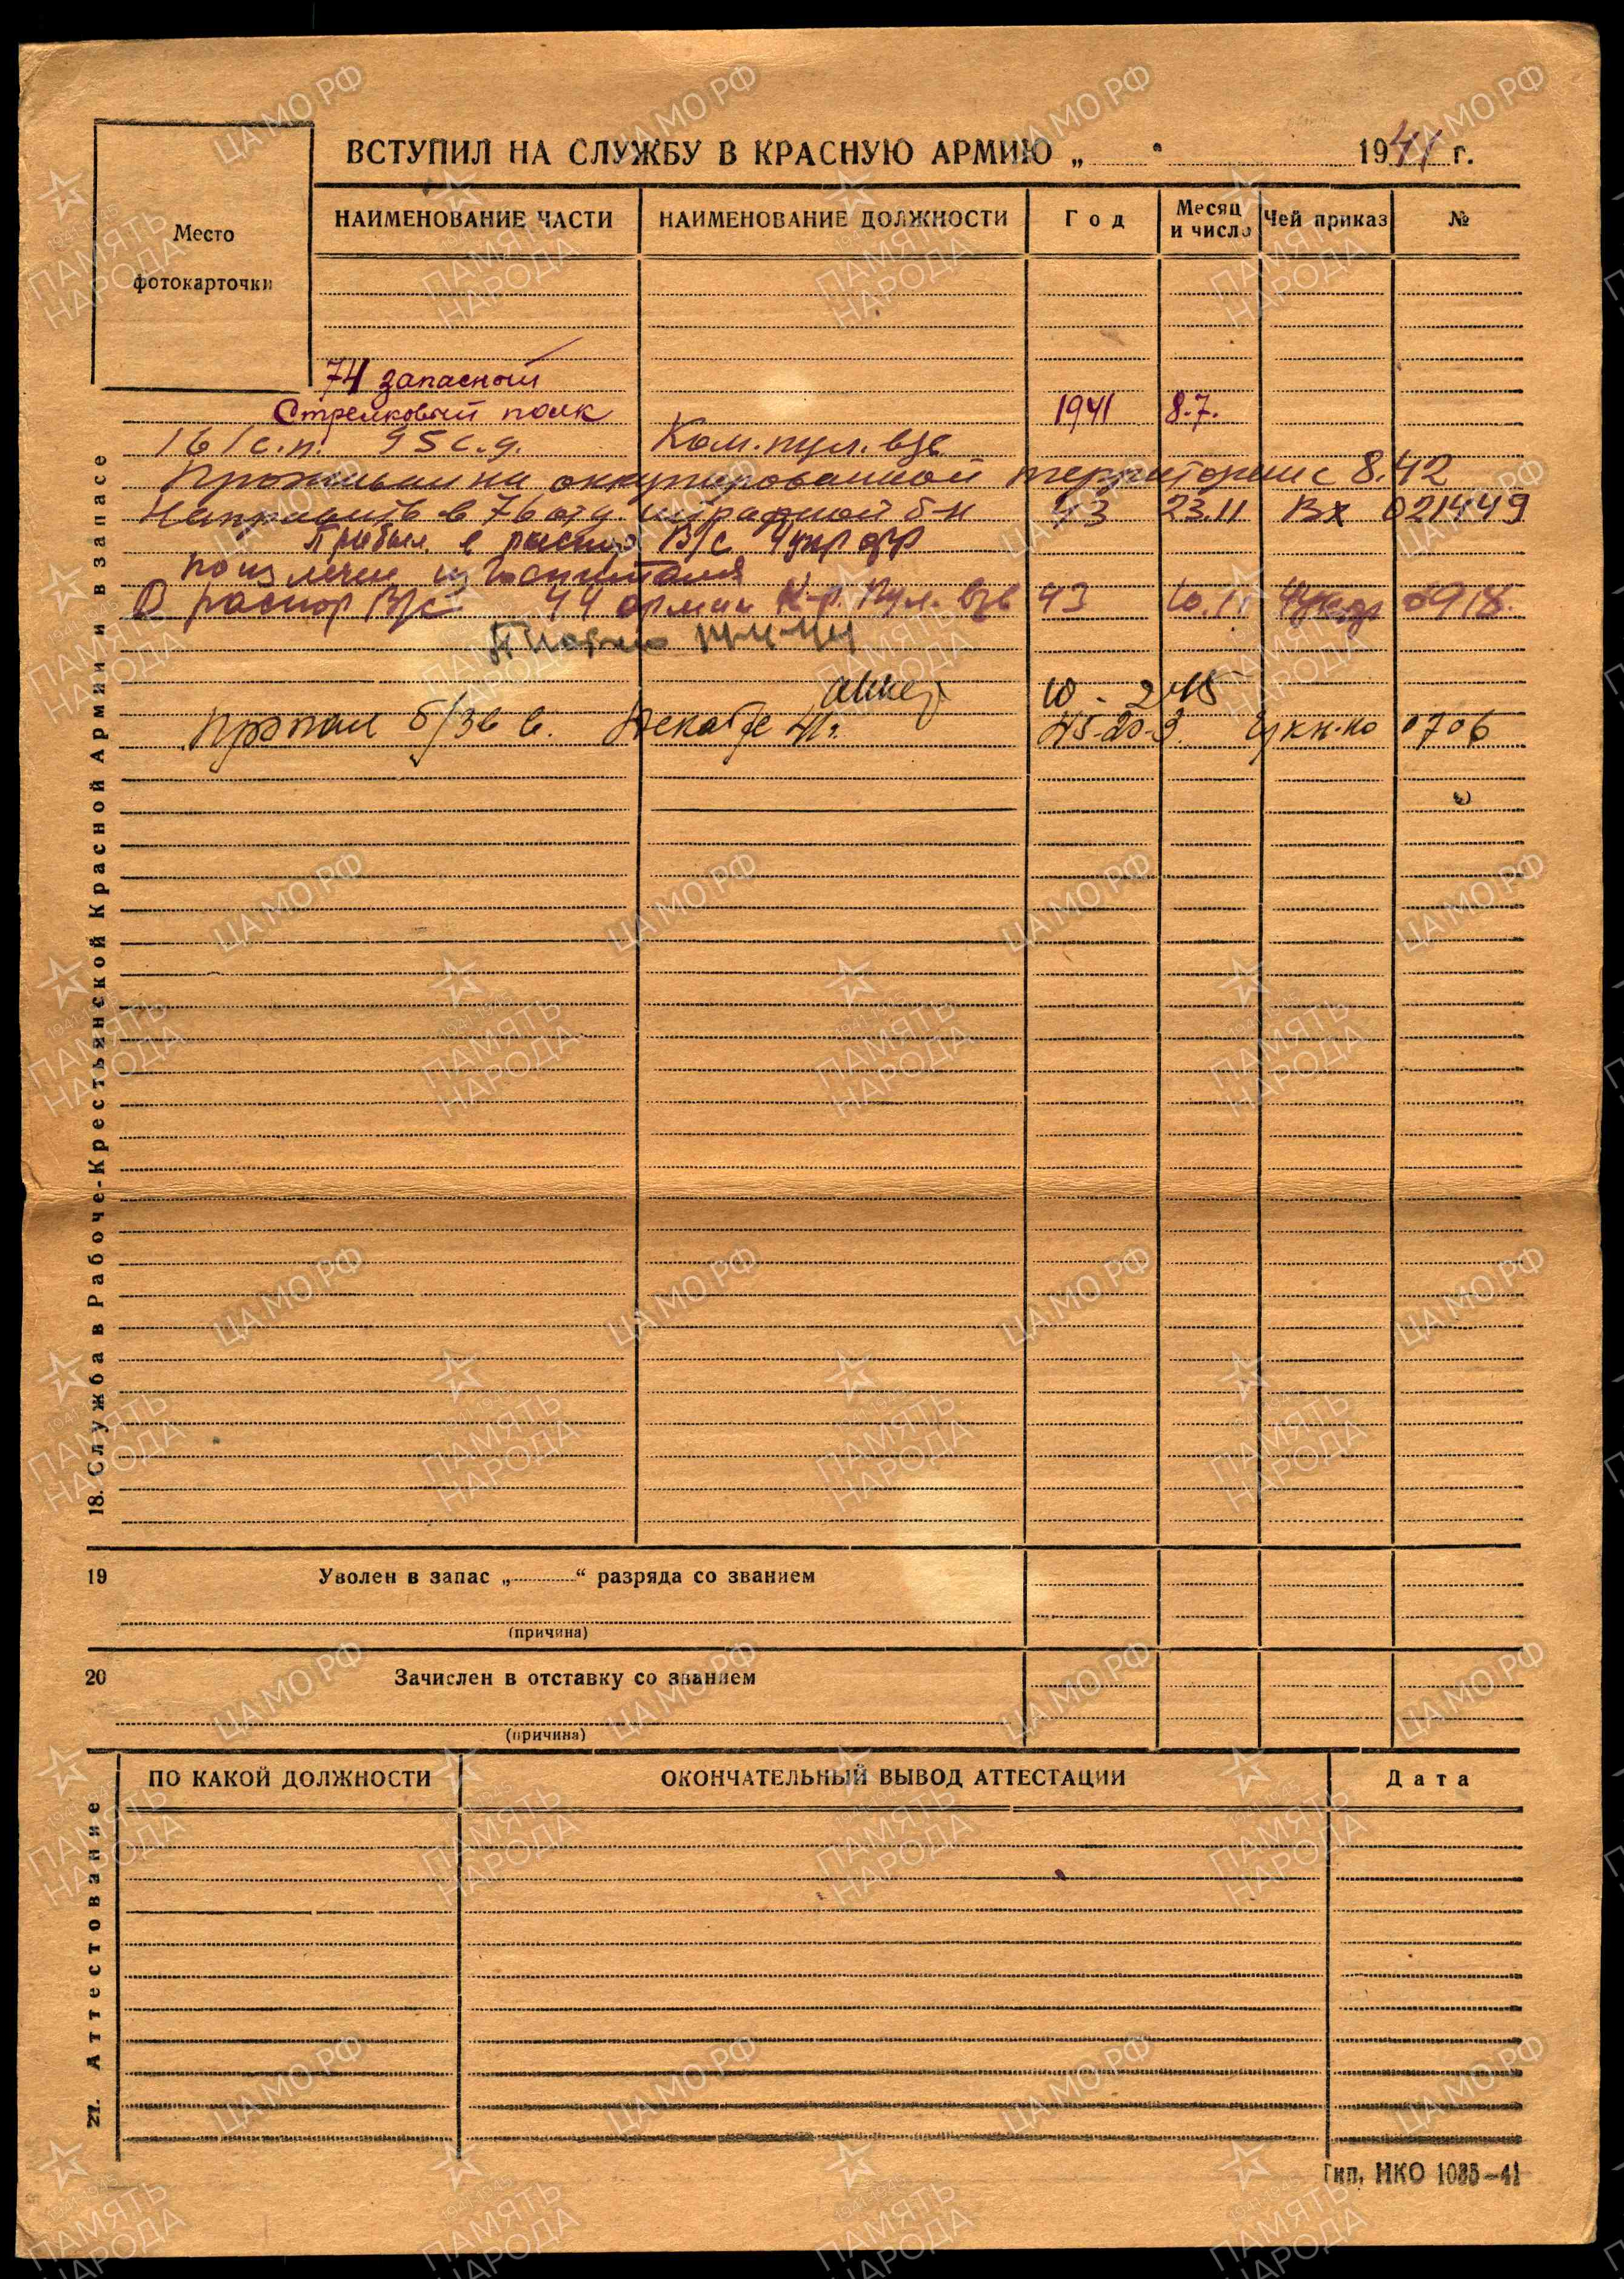 ВСТУПИЛ НА СЛУЖБУ В КРАСНУЮ АРМИЮ „ “ 1941 г.
Место
фотокарточки
НАИМЕНОВАНИЕ ЧАСТИ НАИМЕНОВАНИЕ ДОЛЖНОСТИ Год Месяц и число Чей приказ №
74 запасной
Стрелковый полк 1941 8.7.
161 с.п. 95 с.д. Ком. пул. взв
Проживал на оккупированной территории с 8.42
Направить в 76 отд. штрафной б-н 43 23.11 Вх 021449
Прибыл в распор В/с 4 укр фр
по излечен из госпиталя
В распор В/с 44 армии К-р. Пул. взв 43 10.11 4укр 0918.
10 - 2 45
Пропал б/зв в. Декабре 41г. 45-20-9. 0706
18. Служба в Рабоче-Крестьянской Красной Армии и в запасе
19 Уволен в запас „ “ разряда со званием
(причина)
20 Зачислен в отставку со званием
(причина)
ПО КАКОЙ ДОЛЖНОСТИ ОКОНЧАТЕЛЬНЫЙ ВЫВОД АТТЕСТАЦИИ Дата
21. Аттестование
Тип. НКО 1035—41
ЦАМО.РФ
ПАМЯТЬ НАРОДА
1941-1945